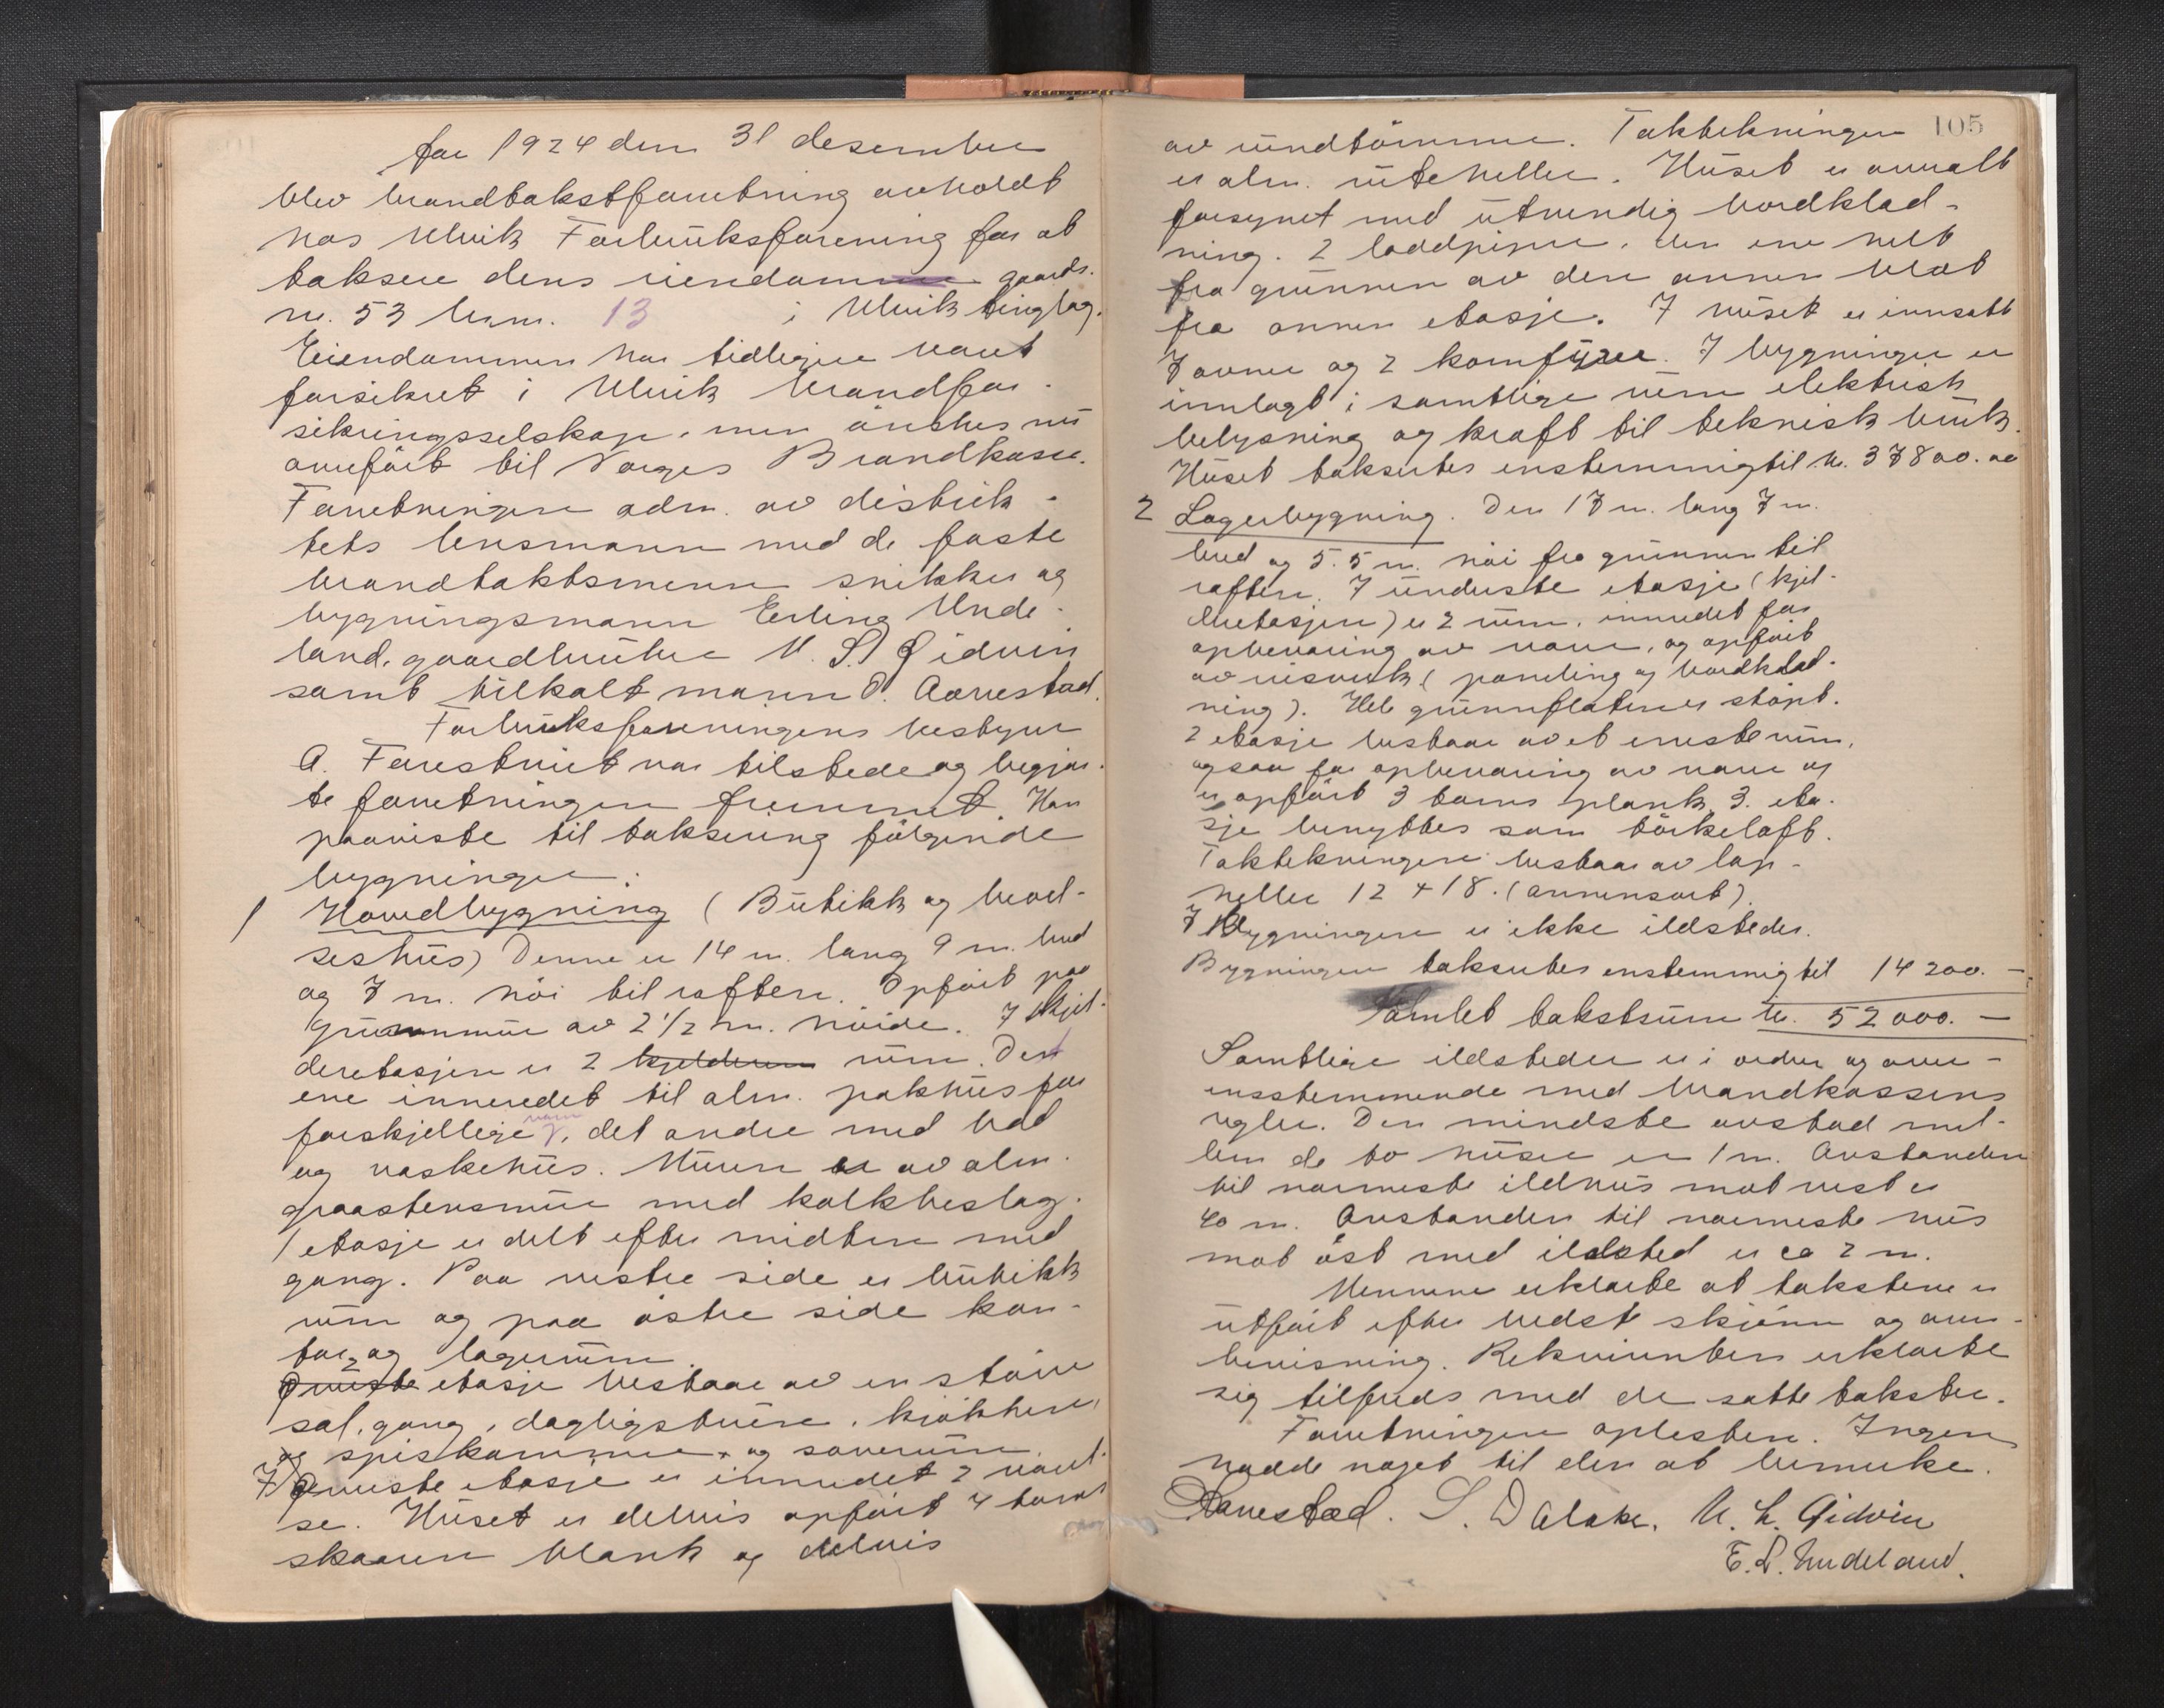 for 1924 den 31 desember
blev brandtakstforretning avholdt
hos Ulvik Forbruksforening for at
taksere dens eiendom gaards.
nr. 53 br.nr. 13 i Ulvik tinglag.
Eiendommen har tidligere vært
forsikret i Ulvik brandfor-
sikringsselskap, men önskes nu
overfört til Norges Brandkasse.
Forretningen adm. av distrik-
tets lensmann med de faste
brandtakstmenn snikker og
bygningsmann Erling Unde-
land, gaardbruker M. L. Hjeltnes
samt tilkalt mann O. Aarrestad.
Forbruksforeningens bestyrer
A. Farestveit var tilstede og begjær-
te forretningen fremmet. Han
paaviste til taksering fölgende
bygninger:
1 Hovedbygning (Butikk og bevel-
seshus) Denne er 14 m. lang 9 m. bred
og 7 m. höi til raftene. Opfört paa
grunnmur av 2 1/2 m. höide. I kjel-
deretasjen er 2 kjelderrum rum. Det
ene inneredet til alm. pakhus for
forskjellige varer, det andre med bad
og vaskehus. Muren er av alm.
graastensmur med kalkbeslag.
1 etasje er delt efter midten med
gang. Paa vestre side er butikk
rum og paa östre side kon-
tor og lagerrum.
2 Överste etasje bestaar av en större
sal, gang, dagligstuer, kjökkener,
og spiskammer, og soverum.
I Överste etasje er inneredet 2 værel-
se. Huset er delvis opfört 4 toms
skaaren plank og delvis
105
av rundtömmer. Taktekningen
er alm. uteheller. Huset er overalt
forsynet med utvendig bordklæd-
ning. 2 loddpiper, den ene helt
fra grunnen av den annen blot
fra annen etasje. I huset er innsatt
7 ovner og 2 komfyrer. I bygningen er
innlagt i samtlige rum elektrisk
belysning og kraft til teknisk bruk.
Huset takseres enstemmig til kr. 37800.00
2 Lagerbygning. Den 17 m. lang 7 m.
bred og 5.5 m. höi fra grunnen til
raftene. I underste etasje (kjel-
deretasjen) er 2 rum, inneredet for
opbevaring av varer, og opfört
av reisverk (paneling og bordklæd-
ning). Hele grunnflaten er stöpt.
2 etasje bestaar av et eneste rum,
ogsaa for opbevaring av varer og
er opfört 3 toms plank. 3. eta-
sje benyttes som törkeloft.
Taktekningen bestaar av lap-
heller 12 + 18. (annensort).
I Bygningen er ikke ildsteder.
Bygningen takseres enstemmig til 14200.—
Samlet takstsum kr. 52000.—
Samtlige ildsteder er i orden og over-
ensstemmende med brandkassens
regler. Den mindste avstad mel-
lem de to huser er 1 m. Avstanden
til nærmeste ildhus mot vest er
40 m. Avstanden til nærmeste hus
mot öst med ildsted er ca 2 m.
Mennene erklærte at takstene er
utfört efter bedste skjönn og over-
bevisning. Rekvirenten erklærte
sig tilfreds med de satte takster.
Forretningen oplesten. Ingen
hadde noget til den at bemerke.
O Aarrestad. S. Dalaker. M. L. Hjeltnes
E. L. Undeland.